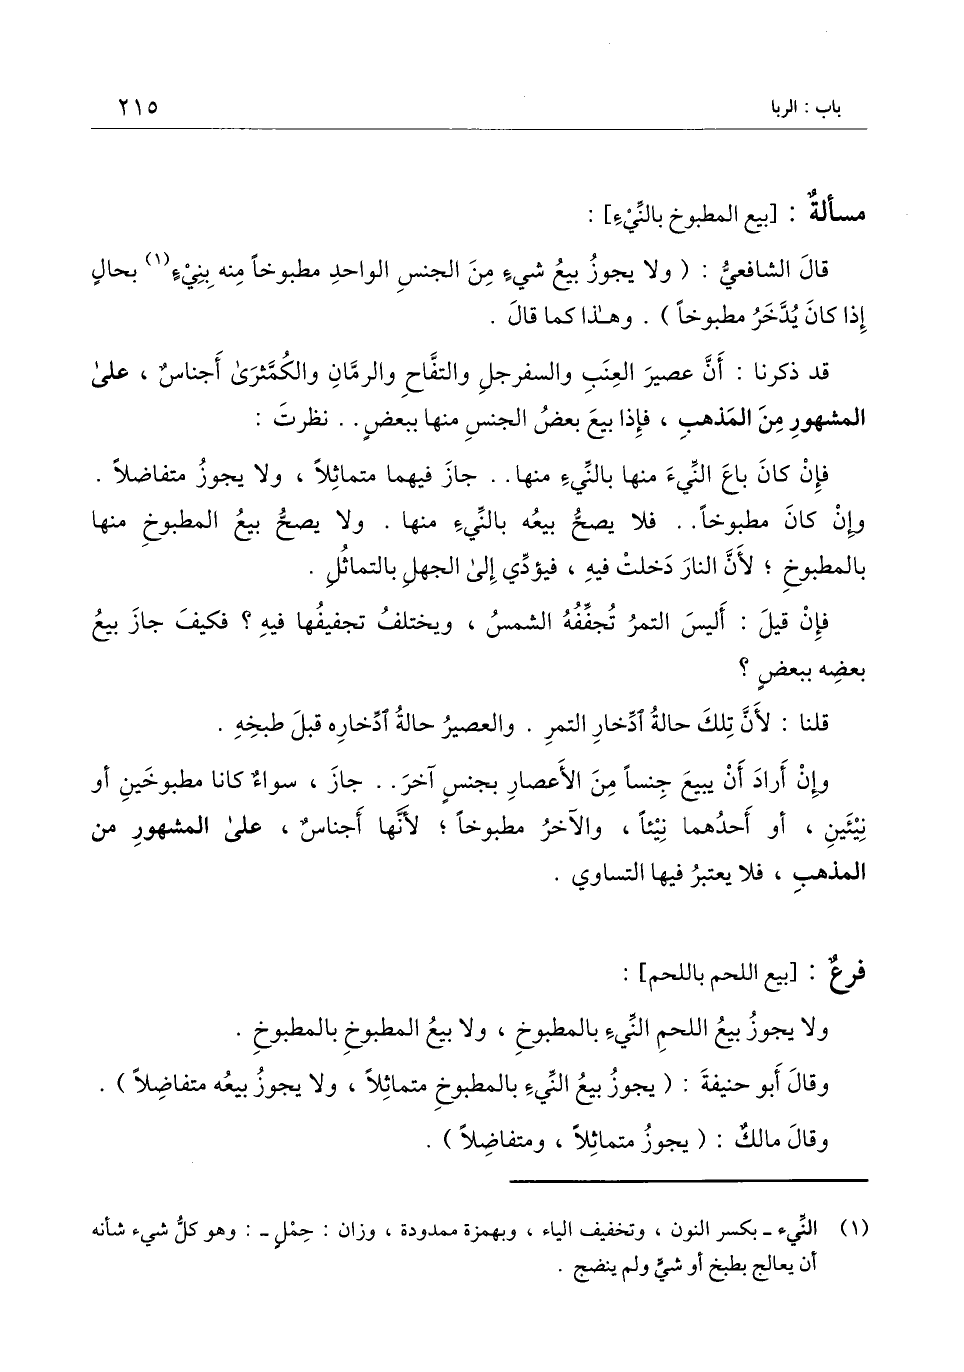 باب : الربا ٢١٥
مسألةٌ : [بيع المطبوخ بالنِّيْءِ] :
قالَ الشافعيُّ : ( ولا يجوزُ بيعُ شيءٍ مِنَ الجنسِ الواحدِ مطبوخاً منه بِنِيْءٍ(١) بحالٍ
إِذا كانَ يُدَّخَرُ مطبوخاً ) . وهـٰذا كما قالَ .
قد ذكرنا : أَنَّ عصيرَ العِنَبِ والسفرجلِ والتفَّاحِ والرمَّانِ والكُمَّثرَىٰ أَجناسٌ ، علىٰ
المشهورِ مِنَ المَذهبِ ، فإِذا بيعَ بعضُ الجنسِ منها ببعضٍ . . نظرتَ :
فإِنْ كانَ باعَ النِّيءَ منها بالنِّيءِ منها . . جازَ فيهما متماثِلاً ، ولا يجوزُ متفاضلاً .
وإِنْ كانَ مطبوخاً . . فلا يصحُّ بيعُه بالنِّيءِ منها . ولا يصحُّ بيعُ المطبوخِ منها
بالمطبوخِ ؛ لأَنَّ النارَ دَخلتْ فيهِ ، فيؤدِّي إِلىٰ الجهلِ بالتماثُلِ .
فإِنْ قيلَ : أَليسَ التمرُ تُجفِّفُهُ الشمسُ ، ويختلفُ تجفيفُها فيهِ ؟ فكيفَ جازَ بيعُ
بعضِه ببعضٍ ؟
قلنا : لأَنَّ تِلكَ حالةُ ٱدِّخارِ التمرِ . والعصيرُ حالةُ ٱدِّخاره قبلَ طبخِهِ .
وإِنْ أَرادَ أَنْ يبيعَ جِنساً مِنَ الأَعصارِ بجنسٍ آخرَ . . جازَ ، سواءٌ كانا مطبوخَينِ أو
نِيْئَينِ ، أو أَحدُهما نِيْئاً ، والآخرُ مطبوخاً ؛ لأَنَّها أَجناسٌ ، علىٰ المشهورِ من
المذهبِ ، فلا يعتبرُ فيها التساوي .
فرعٌ : [بيع اللحم باللحم] :
ولا يجوزُ بيعُ اللحمِ النِّيءِ بالمطبوخِ ، ولا بيعُ المطبوخِ بالمطبوخِ .
وقالَ أَبو حنيفةَ : ( يجوزُ بيعُ النِّيءِ بالمطبوخِ متماثِلاً ، ولا يجوزُ بيعُه متفاضِلاً ) .
وقالَ مالكٌ : ( يجوزُ متماثِلاً ، ومتفاضِلاً ) .
(١) النِّيء ـ بكسر النون ، وتخفيف الياء ، وبهمزة ممدودة ، وزان : حِمْلٍ ـ : وهو كلُّ شيء شأنه
أن يعالج بطبخ أو شيٍّ ولم ينضج .